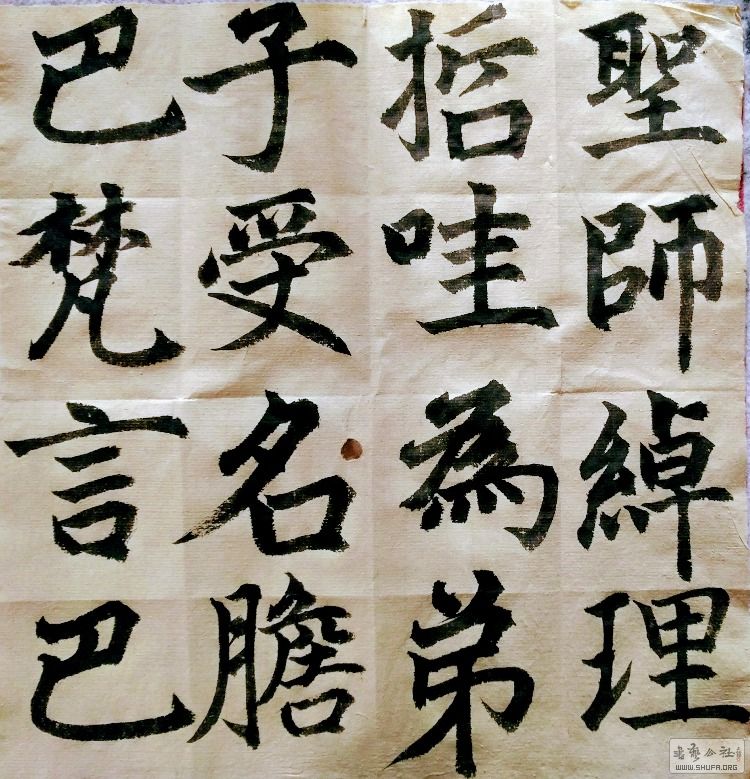 聖師綽理
哲哇為弟
子受名膽
巴梵言巴
書藝公社
WWW.SHUFA.ORG